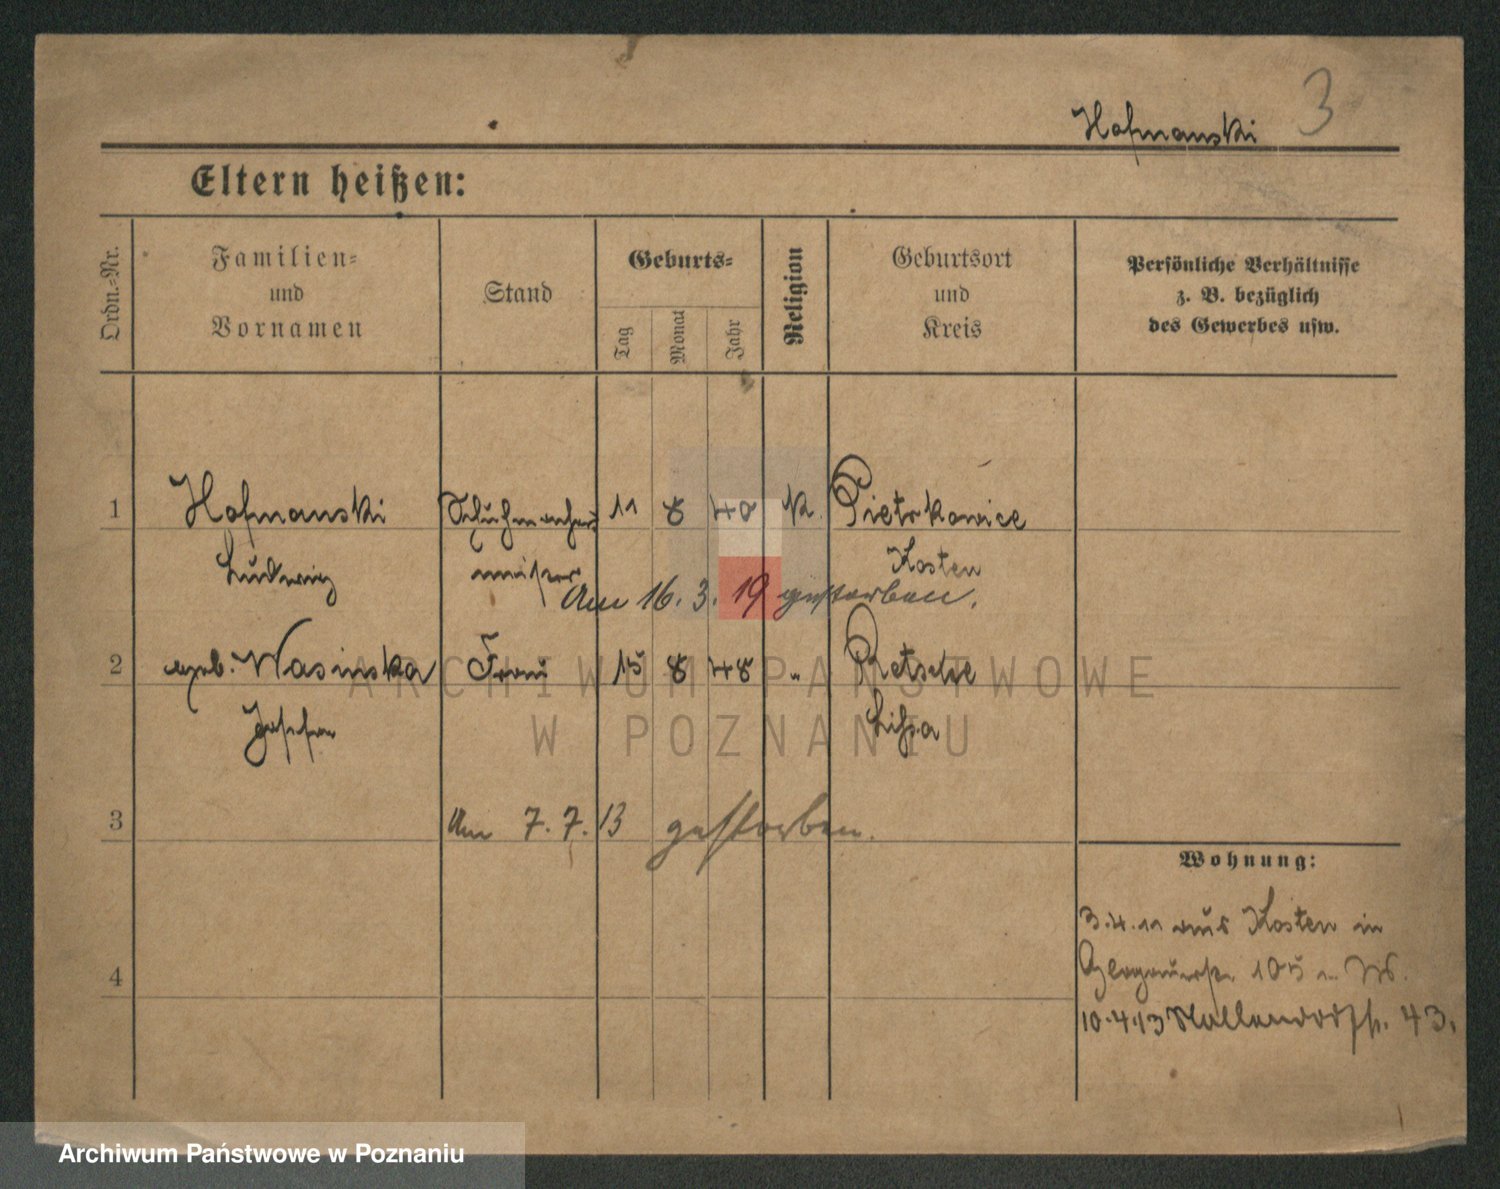 Hofmanski 3
Eltern heißen:
Ordn.-Nr.
Familien-
und
Vornamen
Stand
Geburts-
Tag
Monat
Jahr
Religion
Geburtsort
und
Kreis
Persönliche Verhältnisse
z. B. bezüglich
des Gewerbes usw.
1 Hofmanski Schuhmacher 11 8 40 K. Pietrkowice
Ludwig meister Kosten
Am 16. 3. 19 gestorben.
2 geb. Wasinska Frau 15 8 48 " Retschke
Josefa Lissa
3 Am 7. 7. 13 gestorben.
Wohnung:
3.4.11 aus Kosten in
Glogauerstr. 105
4
10.4.13 43.
ARCHIWUM PAŃSTWOWE
W POZNANIU
Archiwum Państwowe w Poznaniu